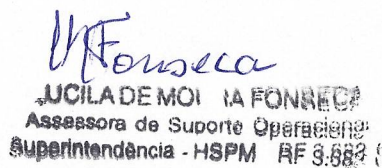 Fonseca
UCILA DE MO FONSECA
Assessora de Suporte Operacional
Superintendência - HSPM RF 3.88